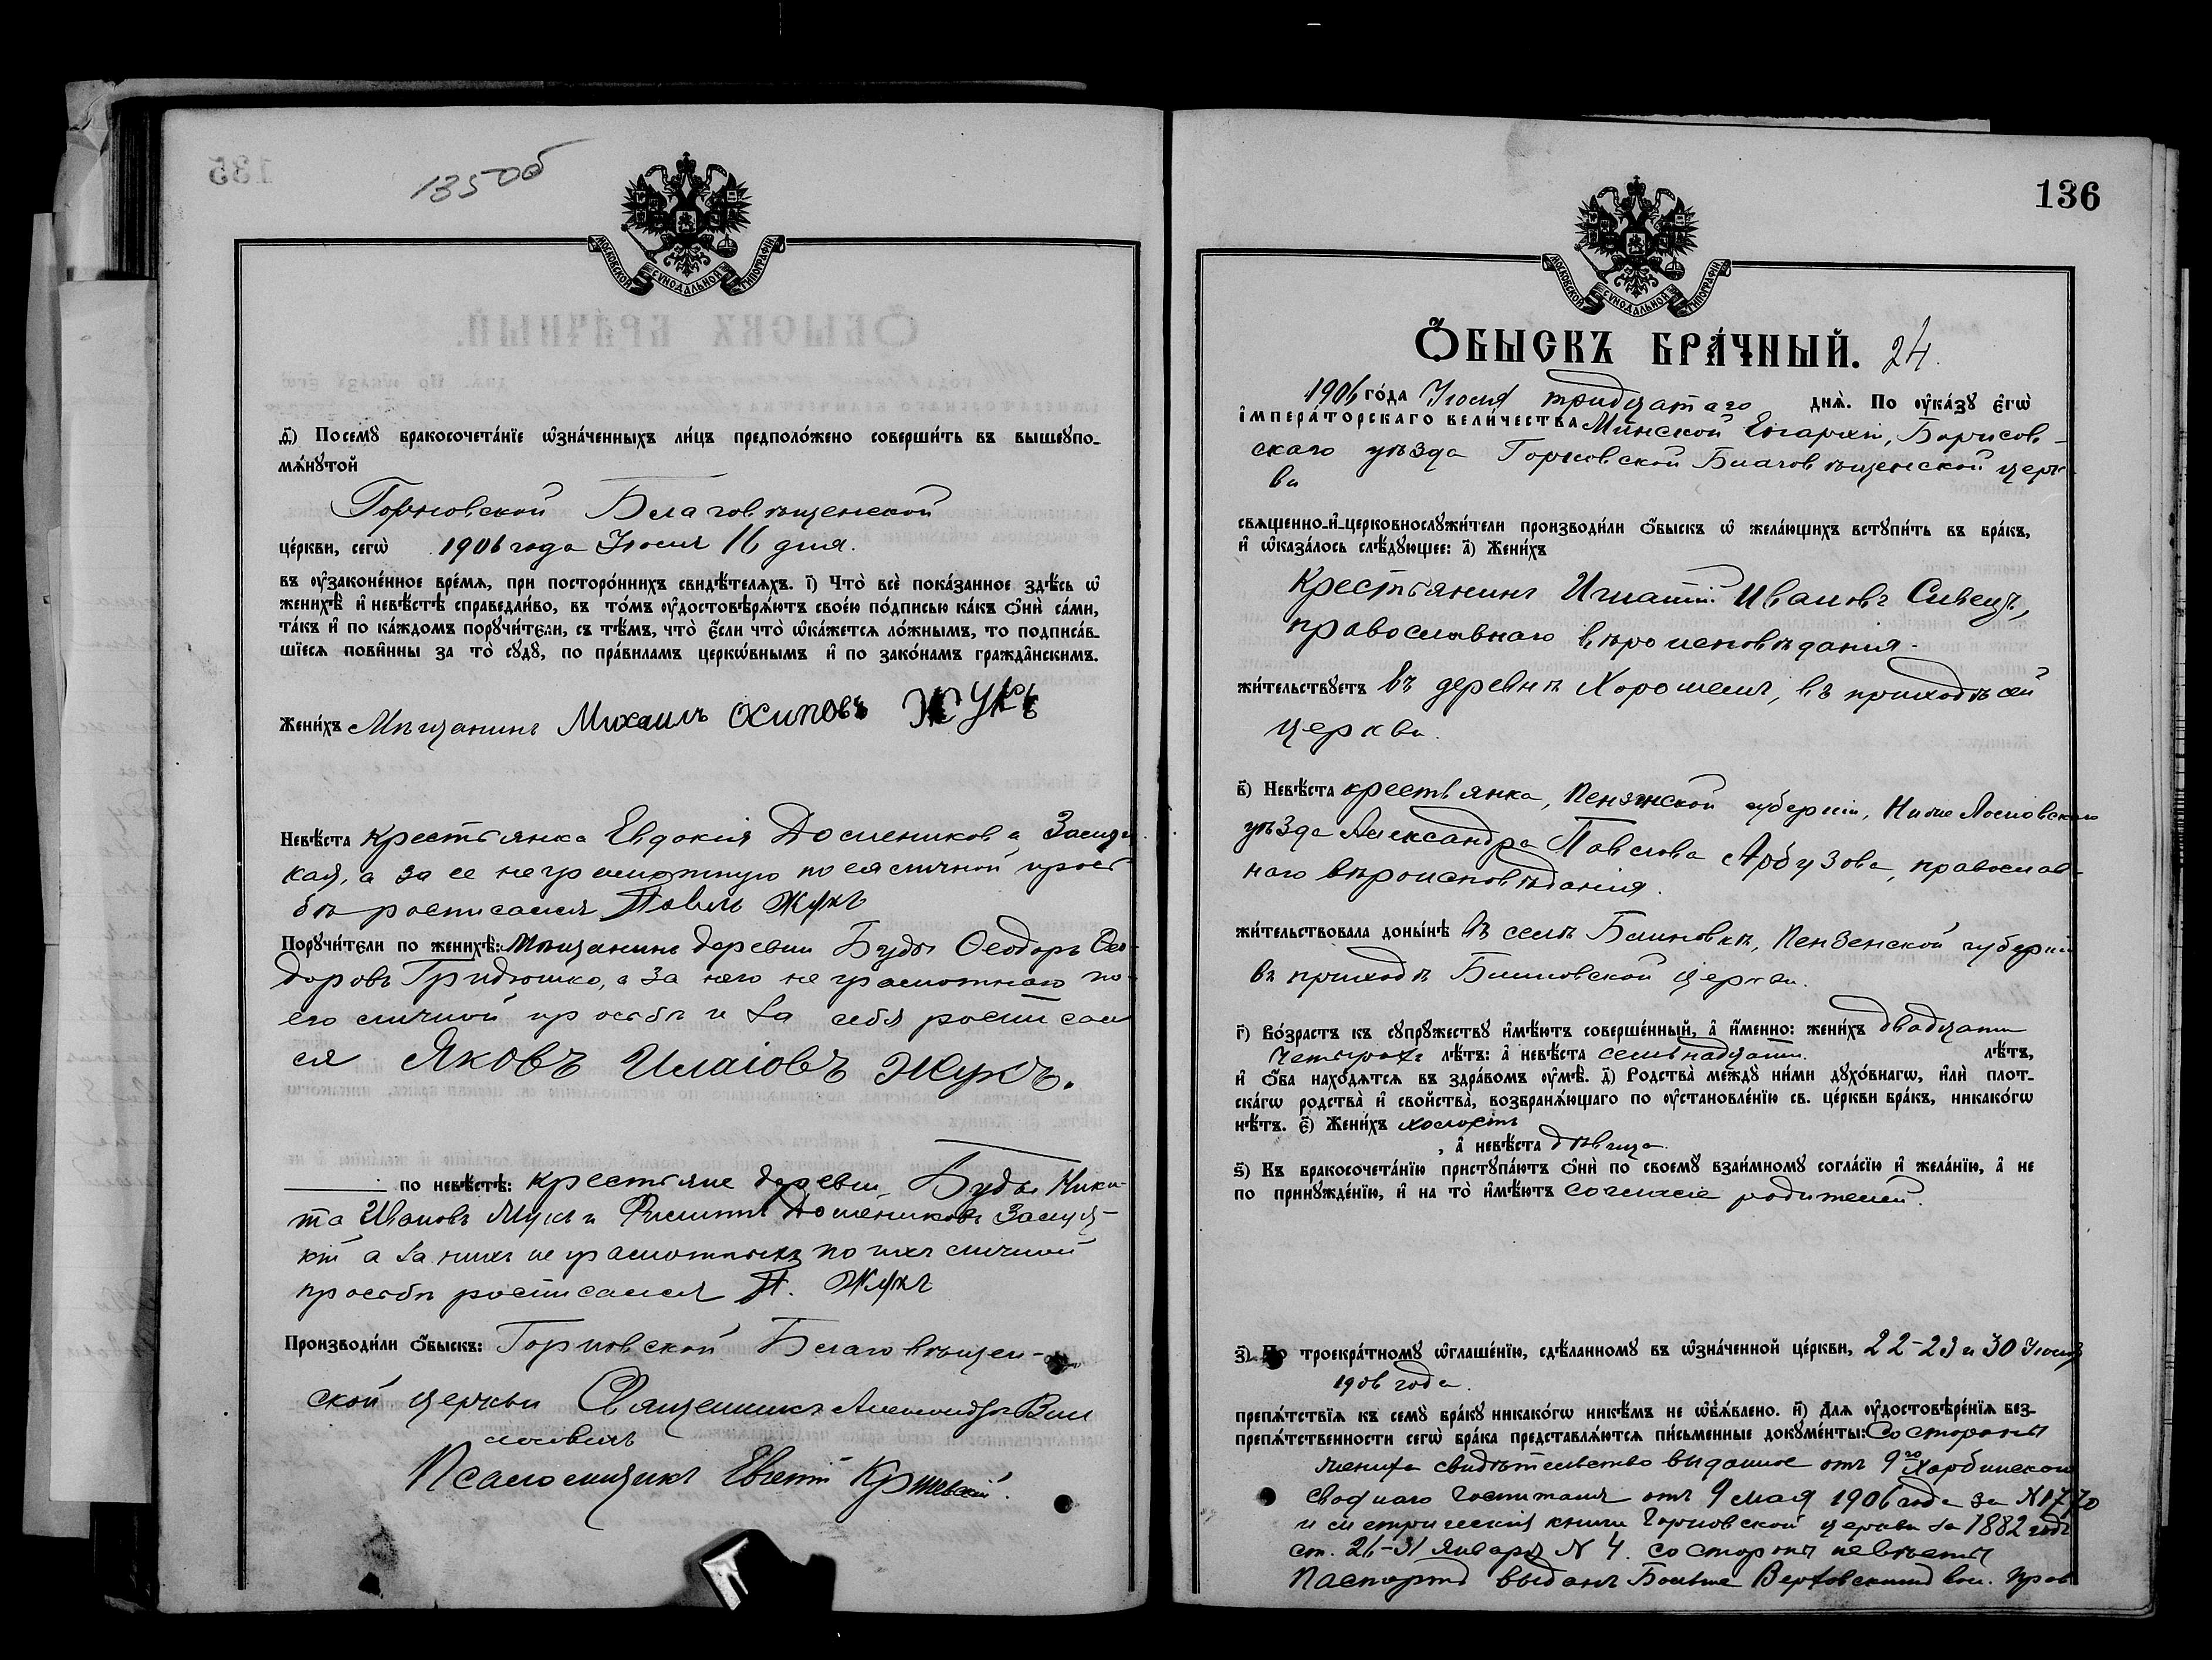 135об
МОСКОВСКОЙ СѴНОДАЛЬНОЙ ТИПОГРАФІИ
ѳ҃) Посемꙋ̀ бракосочета́нїе ѡ҆зна́ченныхъ ли́цъ предполо́жено соверши́ть въ вышеꙋпо-
мѧ́нꙋтой
Горновской Благовѣщенской
це́ркви, сегѡ̀ 1906 года Іюля 16 дня.
въ ᲂу҆законе́нное вре́мѧ, при посторо́ннихъ свидѣ́телѧхъ. і҃) Что̀ всѐ пока́занное здѣ́сь ѡ҆
женихѣ̀ и҆ невѣ́стѣ справедли́во, въ то́мъ ᲂу҆достовѣрѧ́ютъ свое́ю по́дписью ка́къ ѻ҆нѝ са́ми,
та́къ и҆ по ка́ждомъ порꙋчи́тели, съ тѣ́мъ, что̀ є҆́сли что̀ ѡ҆ка́жетсѧ ло́жнымъ, то подписа́в-
шїесѧ пови́нны за то̀ сꙋдꙋ̀, по пра́виламъ церкѡ́внымъ и҆ по зако́намъ гражда́нскимъ.
Жени́хъ Мѣщанинъ Михаилъ Осиповъ Жукъ
Невѣ́ста Крестьянка Евдокія Доменикова
кая, а за ее неграмотную по ея личной прось
бѣ росписался Павелъ Жукъ
Порꙋчи́тели по женихѣ̀: Мѣщанинъ деревни Буды Ѳеодоръ Ѳео-
доровъ Гридюшко, а за него не грамотнаго по
его личной просьбѣ и за себя росписал
ся Яковъ Илаіовъ Жукъ.
по невѣ́стѣ: Крестьяне деревни Буды Ники-
та Ивановъ и Филиппъ Домениковъ
а за нихъ не грамотныхъ по ихъ личной
просьбѣ росписался П. Жукъ
Производи́ли ѻ҆́быскъ: Горновской Благовѣщен-
ской церкви Священникъ Александръ
Псаломщикъ Евгеній
136
МОСКОВСКОЙ СѴНОДАЛЬНОЙ ТИПОГРАФІИ
Ѻ҆́БЫСКЪ БРА́ЧНЫЙ. 24.
1906 го́да Іюля тридцатаго днѧ̀. По ᲂу҆ка́зꙋ є҆гѡ̀
і҆мпера́торскаго вели́чества Минской Епархіи, Борисов-
скаго уѣзда Горновской Благовѣщенской церк-
ви
свѧще́нно-и҆-церковнослꙋжи́тели производи́ли ѻ҆́быскъ ѡ҆ жела́ющихъ встꙋпи́ть въ бра́къ,
и҆ ѡ҆каза́лось слѣ́дꙋющее: а҃) Жени́хъ
Крестьянинъ Игнатій Ивановъ Сивецъ,
православнаго вѣроисповѣданія.
жи́тельствꙋетъ въ деревнѣ Хоромецъ, въ приходѣ сей
церкви.
в҃) Невѣ́ста крестьянка, Пензенской губерніи, Ниже Ломовскаго
уѣзда Александра Павлова Арбузова, православ-
наго вѣроисповѣданія.
жи́тельствовала доны́нѣ въ селѣ Блиновкѣ, Пензенской губерніи
въ приходѣ Блиновской церкви.
г҃) Во́зрастъ къ сꙋпрꙋ́жествꙋ и҆мѣ́ютъ соверше́нный, а҆ и҆́менно: жени́хъ двадцати
четырехъ лѣ́тъ: а҆ невѣ́ста семнадцати. лѣ́тъ,
и҆ ѻ҆́ба нахо́дѧтсѧ въ здра́вомъ ᲂу҆мѣ̀. д҃) Родства̀ междꙋ ни́ми дꙋхо́внагѡ, и҆лѝ плот-
ска́гѡ родства̀ и҆ свойства̀, возбранѧ́ющаго по ᲂу҆становле́нїю св. це́ркви бра́къ, никако́гѡ
нѣ́тъ. є҃) Жени́хъ холостъ
, а҆ невѣ́ста дѣвица.
ѕ҃) Къ бракосочета́нїю пристꙋпа́ютъ ѻ҆нѝ по своемꙋ̀ взаи́мномꙋ согла́сїю и҆ жела́нїю, а҆ не
по принꙋжде́нїю, и҆ на то̀ и҆мѣ́ютъ согласіе родителей.
з҃) По троекра́тномꙋ ѡ҆глаше́нїю, сдѣ́ланномꙋ въ ѡ҆зна́ченной це́ркви, 22-23 и 30 Іюля
1906 года.
препѧ́тствїѧ къ семꙋ̀ бра́кꙋ никако́гѡ никѣ́мъ не ѡ҆б̾ѧ́влено. и҃) Для ᲂу҆достовѣре́нїѧ без-
препѧ́тственности сегѡ̀ бра́ка представлѧ́ютсѧ пи́сьменные докꙋме́нты: Со стороны
жениха свидѣтельство выданное отъ 9го Харбинскаго
своднаго госпиталя отъ 9 мая 1906 года за № 1770
и метрическія книги Горновской церкви за 1882 годъ
ст. 26-31 Января № 4. со стороны невѣсты
Паспортъ выданъ Больше Верховскимъ вол. Прав